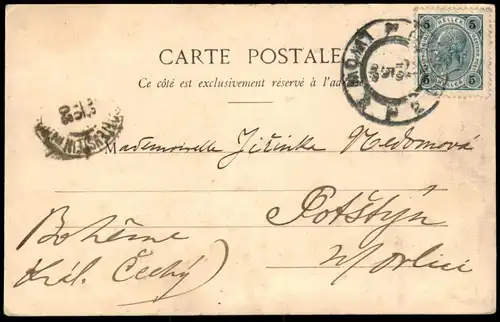 CARTE POSTALE
Ce côté est exclusivement réservé à l'ad
5 HELLER 5
5 5
Mademoiselle Jiřinka Nedomová
Potštýn
n/Orlicí
Bohême
Král. Čechy